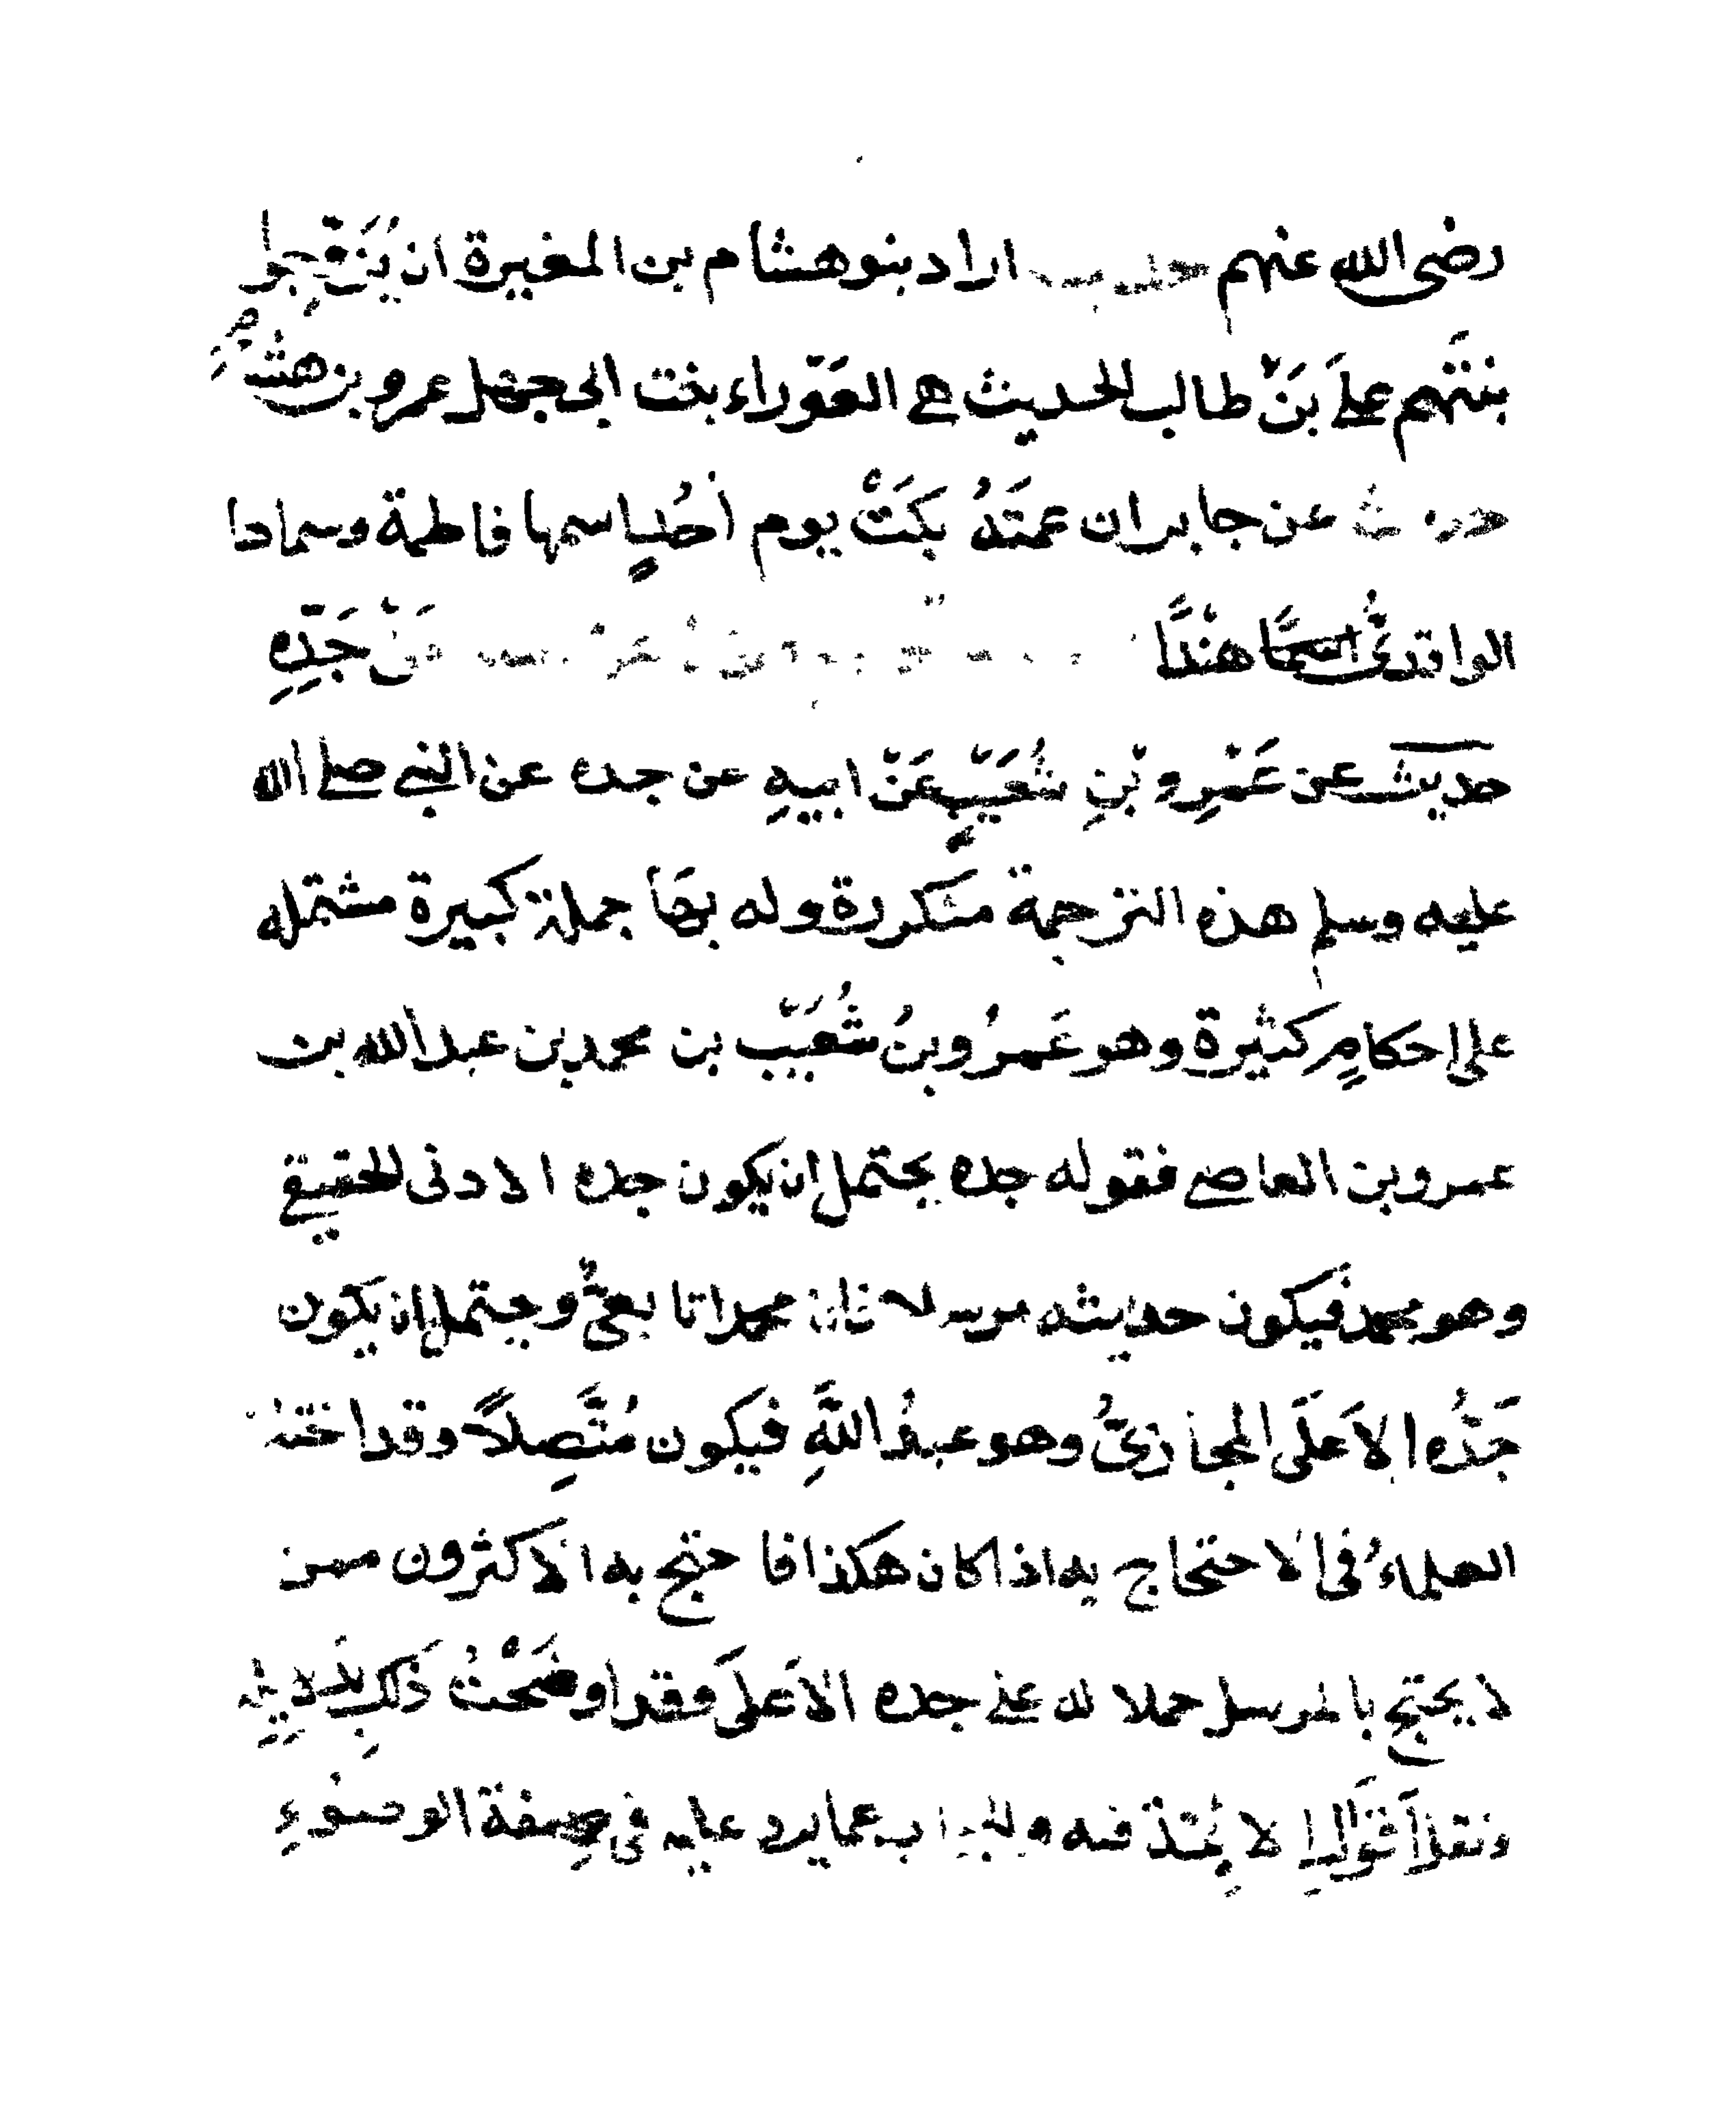 رضى الله عنهم حديث اراد بنو هشام بن المغيرة ان يزوجوا
بنتهم على بن طالب الحديث هى العوراء بنت ابى جهل عمرو بن هشام
حديث عن جابر ان عمته بكت يوم أحد اسمها فاطمة وسماها
الواقدى هندا جده
حديث عن عمرو بن شعيب عن ابيه عن جده عن النبى صلى الله
عليه وسلم هذه الترجمة متكررة وله بها جملة كبيرة مشتمله
على احكام كثيرة وهو عمرو بن شعيب بن محمد بن عبد الله بن
عمرو بن العاصى فقوله جده يحتمل ان يكون جده الادنى الحقيقى
وهو محمد فيكون حديثه مرسلا فان محمدا تابعى ويحتمل ان يكون
جده الأعلى المجازى وهو عبد الله فيكون متصلا وقد اختلف
العلماء فى الاحتجاج به اذا كان هكذا فاحتج به الاكثرون ممن
لا يحتج بالمرسل حملا له على جده الأعلى وقد اوضحت ذلك
لا والجواب عما يرد عليه فى صفة الوضوء